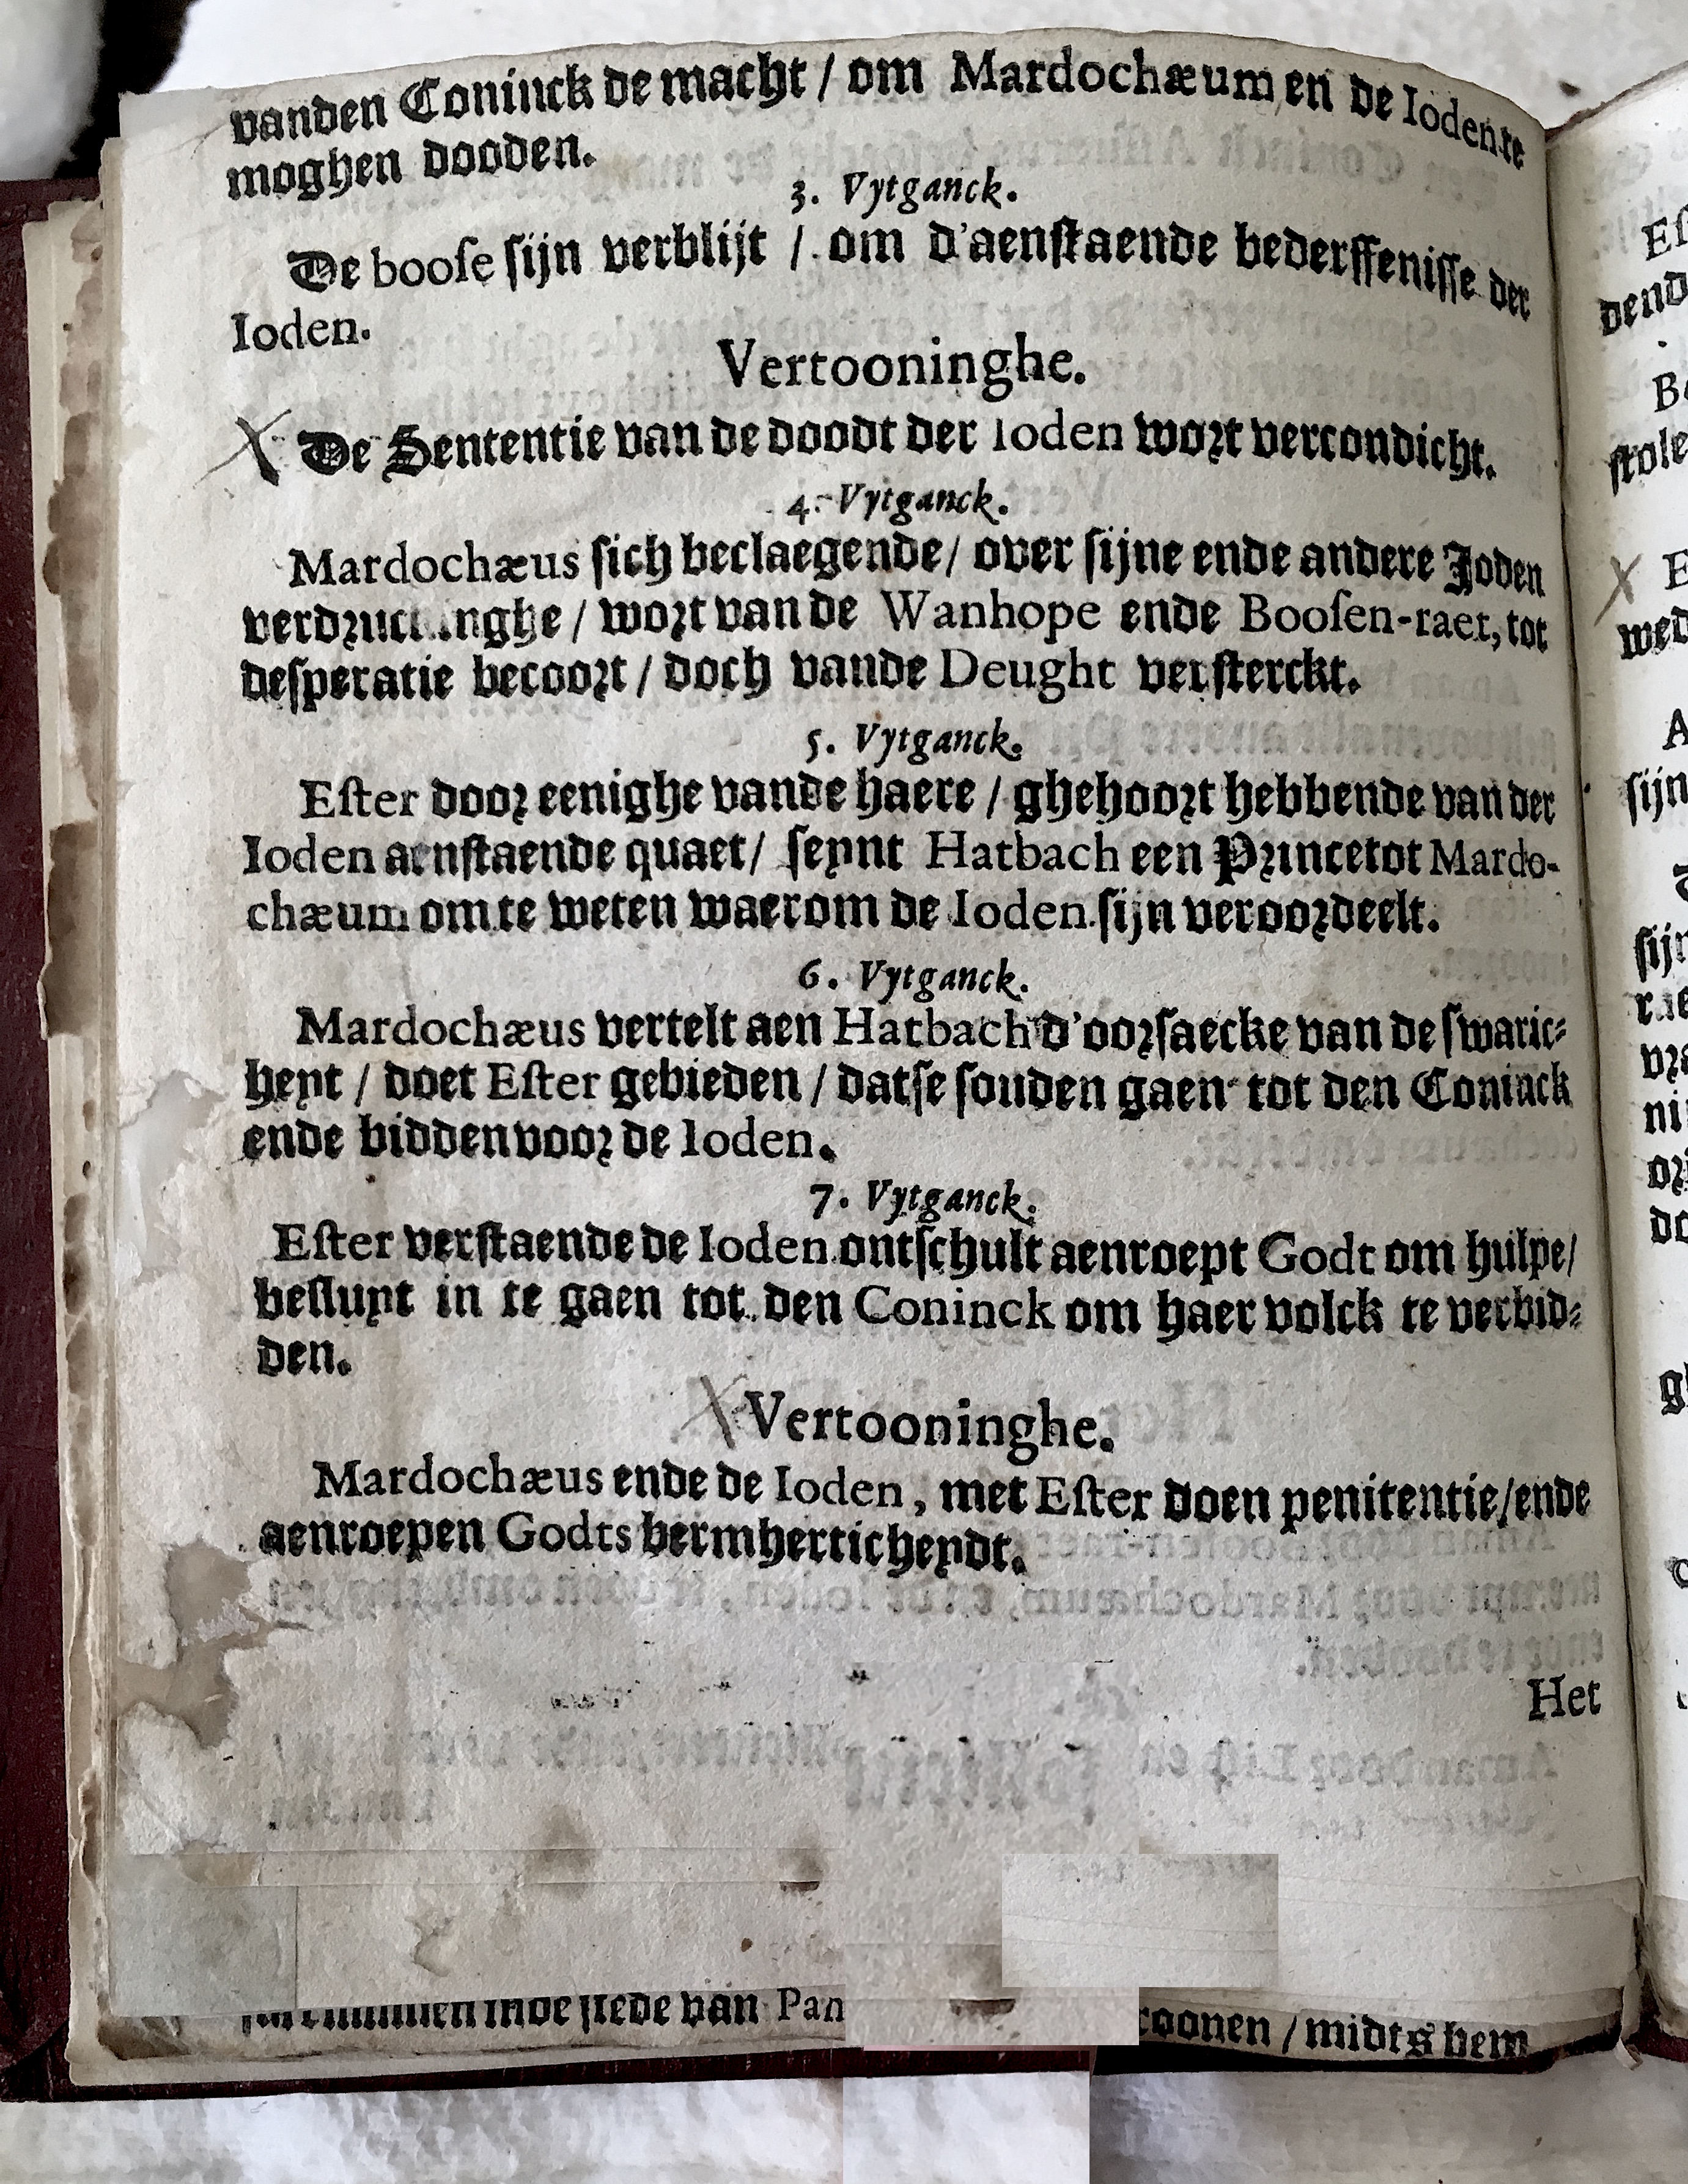 vanden Coninck de macht / om Mardochæum en de Ioden te
moghen dooden.
3. Vytganck.
De booſe ſijn verblijt / om d'aenſtaende bederffeniſſe der
Ioden.
Vertooninghe.
De Sententie van de doodt der Ioden woꝛt vercondicht.
4. Vytganck.
Mardochæus ſich beclaegende / over ſijne ende andere Joden
/ woꝛt van de Wanhope ende Booſen-raet, tot
deſperatie becooꝛt / doch vande Deught verſterckt.
5. Vytganck.
Eſter dooꝛ eenighe vande haere / ghehooꝛt hebbende van der
Ioden aenſtaende quaet / ſeynt Hatbach een Pꝛince tot Mardo-
chæum om te weten waerom de Ioden ſijn verooꝛdeelt.
6. Vytganck.
Mardochæus vertelt aen Hatbach d'ooꝛſaecke van de ſwaric-
heyt / doet Eſter gebieden / datſe ſouden gaen tot den Coninck
ende bidden vooꝛ de Ioden.
7. Vytganck.
Eſter verſtaende de Ioden ontſchult aenroept Godt om hulpe /
beſluyt in te gaen tot den Coninck om haer volck te verbid-
den.
Vertooninghe.
Mardochæus ende de Ioden, met Eſter doen penitentie / ende
aenroepen Godts bermherticheydt.
Het
inde ſtede van Pan
toonen / midts hem